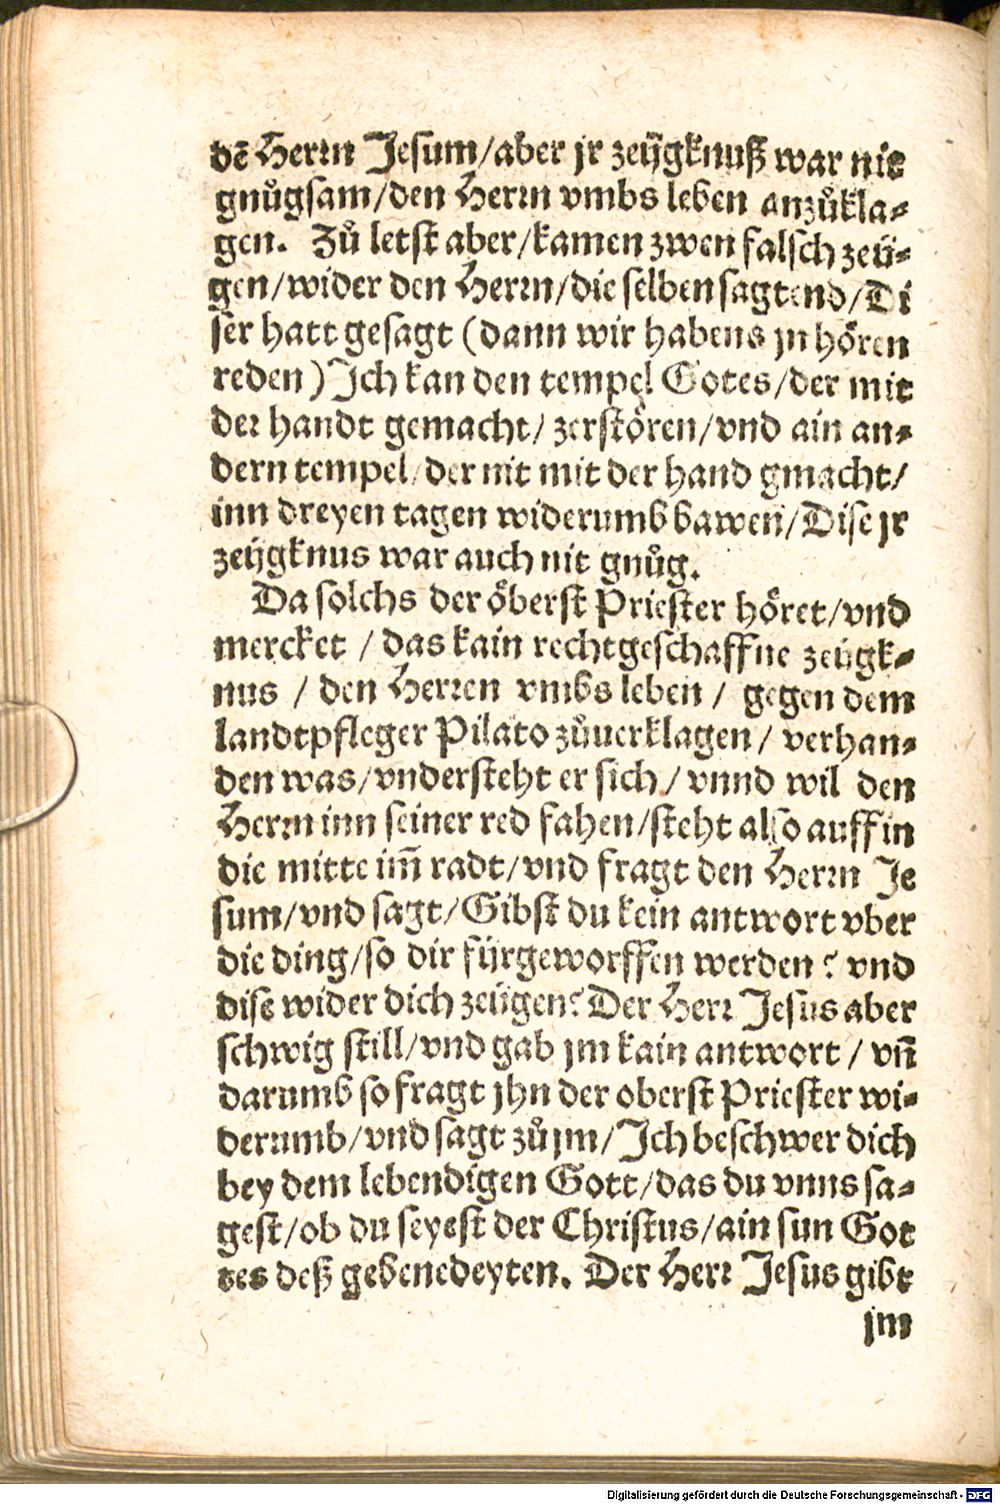 dē Herrn Jesum/aber jr zeÿgknuß war nit
gnůgsam/den Herrn vmbs leben anzůkla⸗
gen. Zů letst aber/kamen zwen falsch zeü⸗
gen/wider den Herrn/die selben sagtend/Di
ser hatt gesagt (dann wir habens jn hören
reden) Ich kan den tempel Gotes/der mit
der handt gemacht/zerstören/vnd ain an⸗
dern tempel/der nit mit der hand gmacht/
inn dreyen tagen widerumb bawen/Dise jr
zeÿgknus war auch nit gnůg.
Da solchs der öberst Priester höret/vnd
mercket / das kain rechtgeschaffne zeügk⸗
nus / den Herren vmbs leben / gegen dem
landtpfleger Pilato zůuerklagen / verhan⸗
den was/vndersteht er sich/ vnnd wil den
Herrn inn seiner red fahen/steht also auff in
die mitte im̄ radt/vnd fragt den Herrn Je
sum/vnd sagt/Gibst du kein antwort vber
die ding/so dir fürgeworffen werden? vnd
dise wider dich zeügen? Der Herr Jesus aber
schwig still/vnd gab jm kain antwort / vn̄
darumb so fragt jhn der oberst Priester wi⸗
derumb/vnd sagt zů jm/Ich beschwer dich
bey dem lebendigen Gott/das du vnns sa⸗
gest/ob du seyest der Christus/ain sun Got
tes deß gebenedeyten. Der Herr Jesus gibt
jm
Digitalisierung gefördert durch die Deutsche Forschungsgemeinschaft - DFG